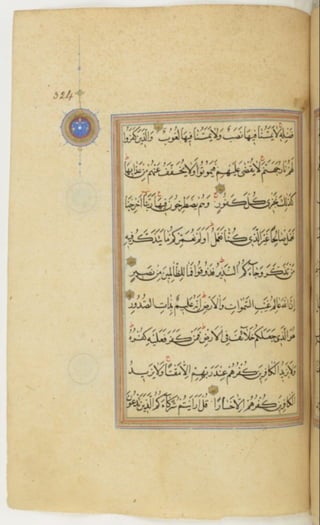 324
فَضْلِهِ لَا يَمَسُّنَا فِيهَا نَصَبٌ وَلَا يَمَسُّنَا فِيهَا لُغُوبٌ وَالَّذِينَ كَفَرُوا
لَهُمْ نَارُ جَهَنَّمَ لَا يُقْضَى عَلَيْهِمْ فَيَمُوتُوا وَلَا يُخَفَّفُ عَنْهُمْ مِنْ عَذَابِهَا
كَذَلِكَ نَجْزِي كُلَّ كَفُورٍ وَهُمْ يَصْطَرِخُونَ فِيهَا رَبَّنَا أَخْرِجْنَا
نَعْمَلْ صَالِحًا غَيْرَ الَّذِي كُنَّا نَعْمَلُ أَوَلَمْ نُعَمِّرْكُمْ مَا يَتَذَكَّرُ فِيهِ
مَنْ تَذَكَّرَ وَجَاءَكُمُ النَّذِيرُ فَذُوقُوا فَمَا لِلظَّالِمِينَ مِنْ نَصِيرٍ
إِنَّ اللَّهَ عَالِمُ غَيْبِ السَّمَوَاتِ وَالْأَرْضِ إِنَّهُ عَلِيمٌ بِذَاتِ الصُّدُورِ
هُوَ الَّذِي جَعَلَكُمْ خَلَائِفَ فِي الْأَرْضِ فَمَنْ كَفَرَ فَعَلَيْهِ كُفْرُهُ
وَلَا يَزِيدُ الْكَافِرِينَ كُفْرُهُمْ عِنْدَ رَبِّهِمْ إِلَّا مَقْتًا وَلَا يَزِيدُ
الْكَافِرِينَ كُفْرُهُمْ إِلَّا خَسَارًا قُلْ أَرَأَيْتُمْ شُرَكَاءَكُمُ الَّذِينَ تَدْعُونَ